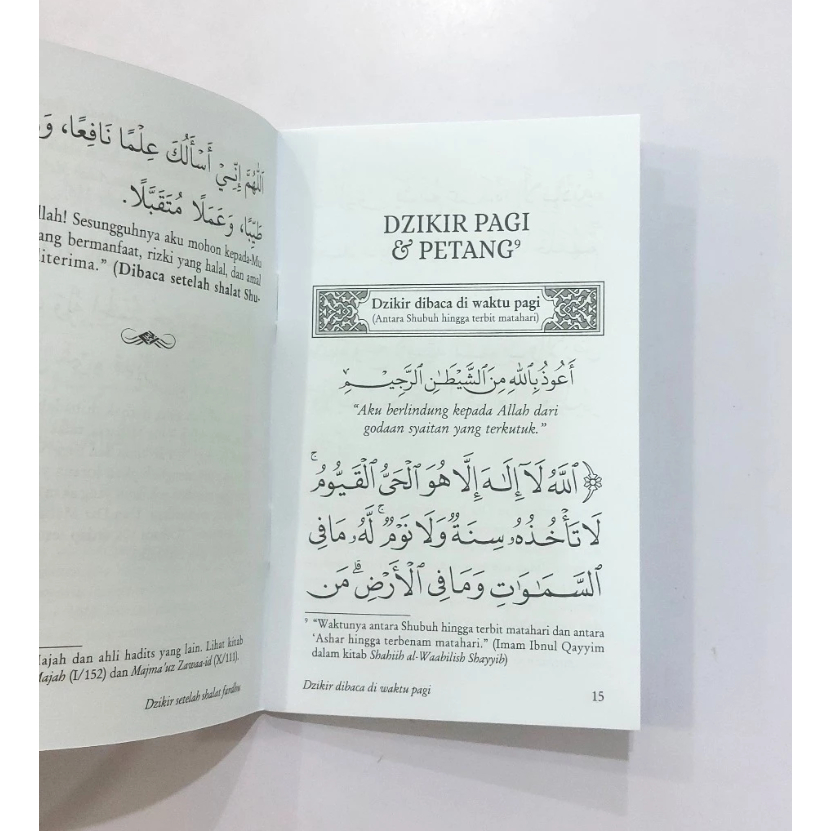 اَللّٰهُمَّ إِنِّيْ أَسْأَلُكَ عِلْمًا نَافِعًا، وَ
طَيِّبًا، وَعَمَلًا مُتَقَبَّلًا.
llah! Sesungguhnya aku mohon kepada-Mu
ang bermanfaat, rizki yang halal, dan amal
iterima.” (Dibaca setelah shalat Shu-
ajah dan ahli hadits yang lain. Lihat kitab
Majah (I/152) dan Majma’uz Zawaa-id (X/111).
Dzikir setelah shalat fardhu
DZIKIR PAGI
& PETANG⁹
Dzikir dibaca di waktu pagi
(Antara Shubuh hingga terbit matahari)
أَعُوذُ بِاللَّهِ مِنَ الشَّيْطَٰنِ الرَّجِيْمِ
“Aku berlindung kepada Allah dari
godaan syaitan yang terkutuk.”
﴿ ٱللَّهُ لَآ إِلَٰهَ إِلَّا هُوَ ٱلْحَىُّ ٱلْقَيُّومُ ۚ
لَا تَأْخُذُهُۥ سِنَةٌ وَلَا نَوْمٌ ۚ لَّهُۥ مَا فِى
ٱلسَّمَٰوَٰتِ وَمَا فِى ٱلْأَرْضِ ۗ مَن
⁹ “Waktunya antara Shubuh hingga terbit matahari dan antara
‘Ashar hingga terbenam matahari.” (Imam Ibnul Qayyim
dalam kitab Shahiih al-Waabilish Shayyib)
Dzikir dibaca di waktu pagi
15